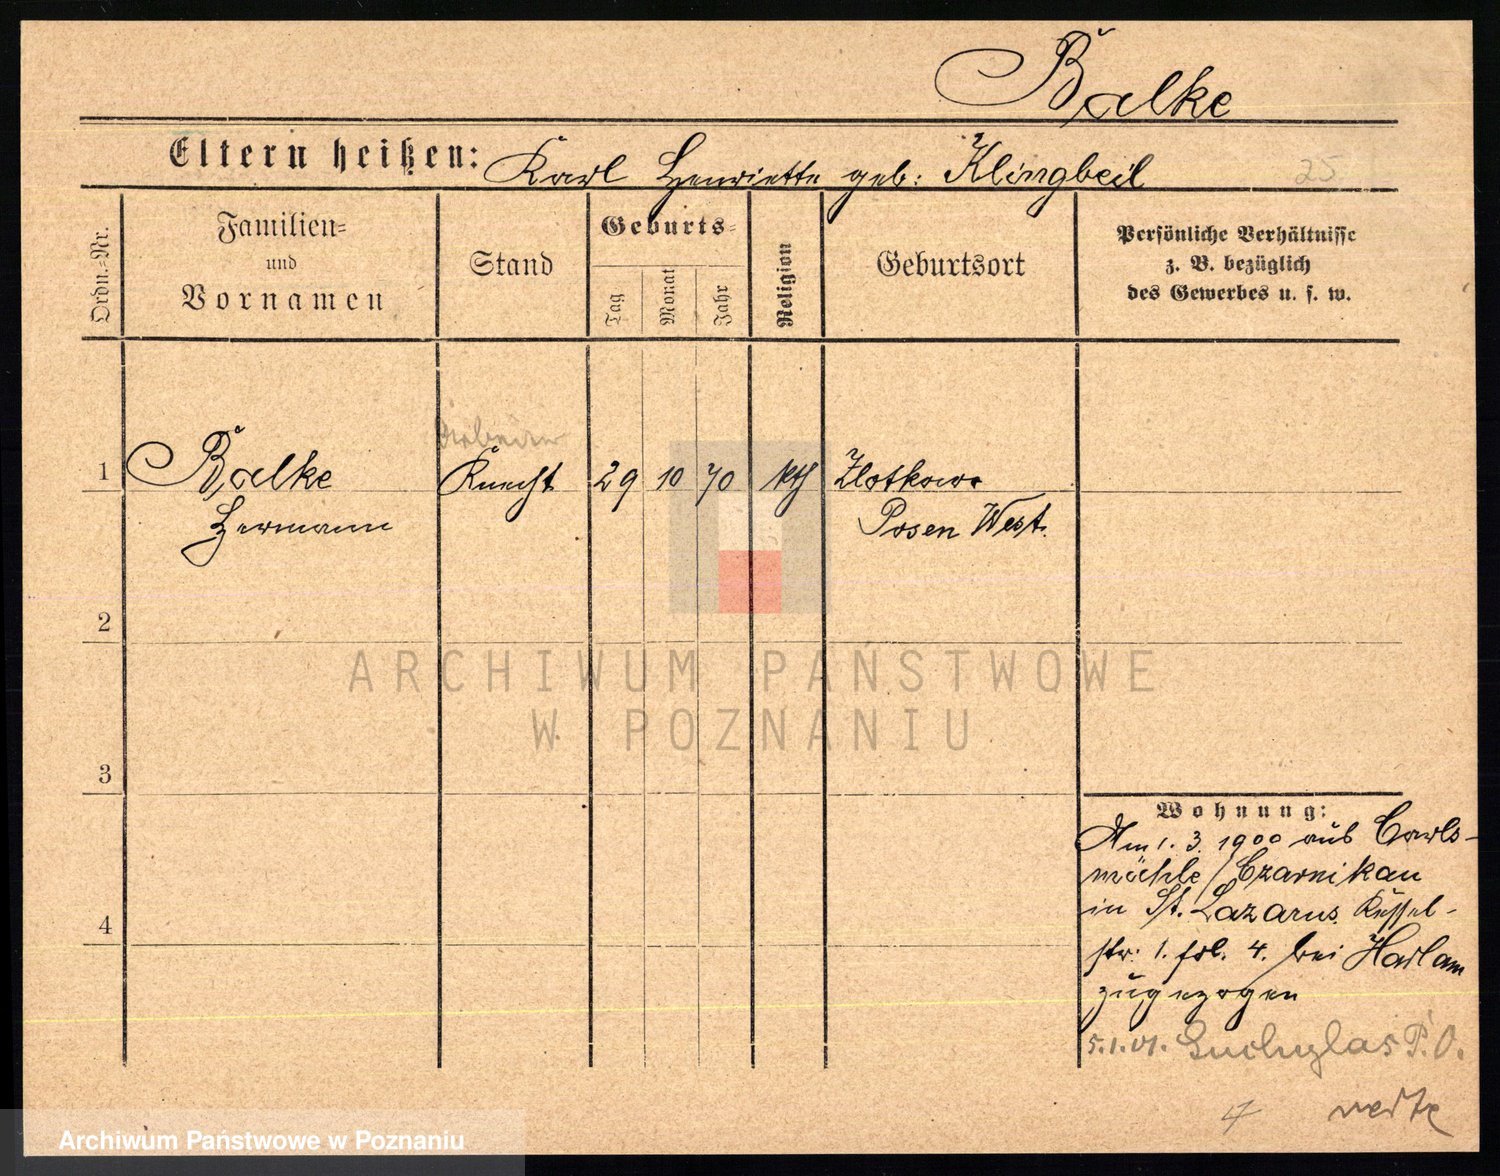 Balke
Eltern heißen: Karl Henriette geb: Klingbeil
25
Ordn.-Nr.
Familien-
und
Vornamen
Stand
Geburts-
Tag
Monat
Jahr
Religion
Geburtsort
Persönliche Verhältnisse
z. B. bezüglich
des Gewerbes u. s. w.
Arbeiter
1 Balke Knecht 29 10 70 kth Zlotkowo
Hermann Posen West.
2
ARCHIWUM PAŃSTWOWE
W POZNANIU
3
Wohnung:
Am 1. 3. 1900 aus Carls-
mühle / Czarnikau
in St. Lazarus
4
str: 1. bei Harlam
zugezogen
5.1.01. P. O.
Archiwum Państwowe w Poznaniu